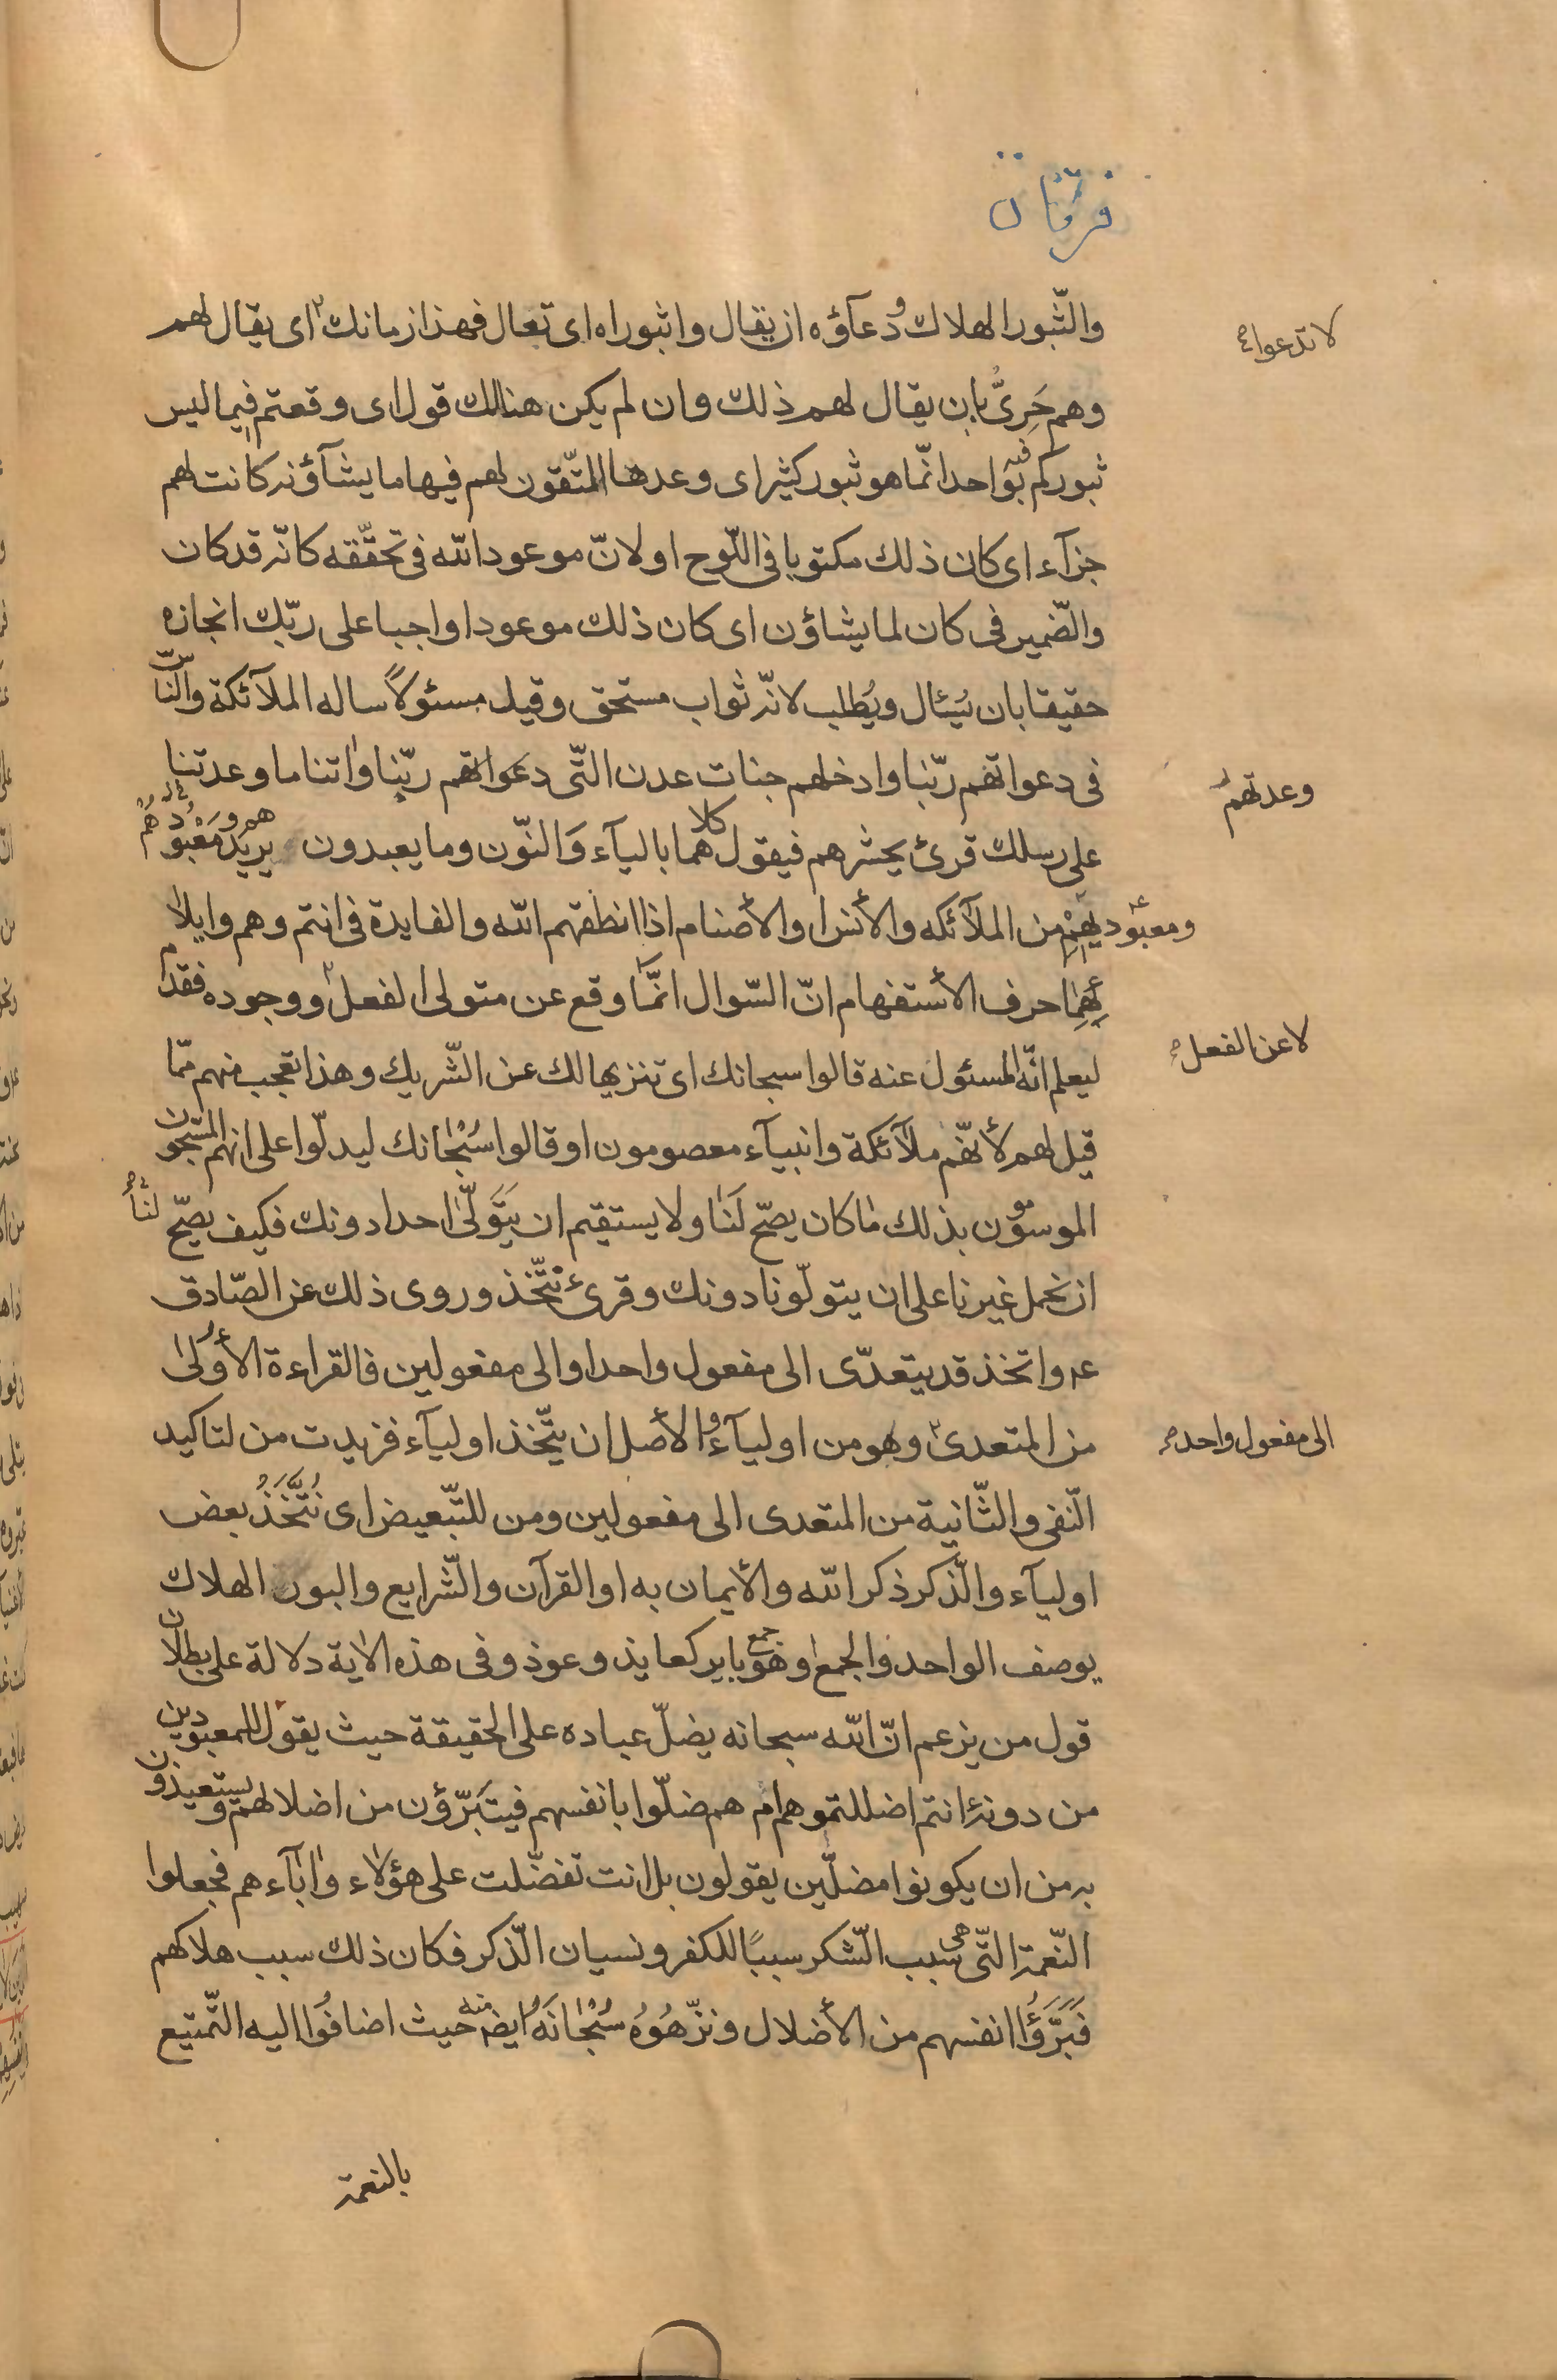 فرقان
والثّبور الهلاك ودعآؤه ان يقال واثبوراه اى تعال فهذا زمانك اى يقال لهم
لا تدعوا
وهم حَرِىٌّ بان يقال لهم ذلك وان لم يكن هنالك قول اى وقعتم فيما ليس
ثبوركم فيه بواحد انّما هو ثبور كثير اى وعدها المتّقون لهم فيها ما يشآؤنه كانت لهم
جزآء اى كان ذلك مكتوبا فى اللّوح او لانّ موعود الله فى تحقّقه كانّه قد كان
والضّمير فى كان لما يشاؤن اى كان ذلك موعودا واجبا على ربّك انجازه
حقيقا بان يُسئال ويُطلب لانّه ثواب مستحق وقيل مسئولاً ساله الملآئكة والنّاس
فى دعواتهم ربّنا وادخلهم جنات عدن التّى دعواتهم ربّنا واتنا ما وعدتنا
وعدتهم
على رسلك قرئ يحشرهم فيقول كلاهما باليآء وَالنّون وما يعبدون يريد معبودهم
ومعبوديهم من الملآئكه والأنس او الأصنام اذا انطقهم الله والفايدة فى انتم وهم وايلا
ئهما حرف الأستفهام انّ السّوال انّما وقع عن متولى الفعل ووجوده فقدم
لا عن الفعل
ليعلم انّه المسئول عنه قالوا سبحانك اى تنزيها لك عن الشّريك وهذا تعجب منهم ممّا
قيل لهم لأنّهم ملآئكة وانبيآء معصومون او قالوا سُبْحانك ليدلّوا على انهم المسبّحون
الموسومون بذلك ما كان يصحّ لَنَا ولا يستقيم ان يتَولّىٰ احدا دونك فكيف يصحّ لنا
ان نحمل غيرنا على ان يتولّونا دونك وقرئ نتّخذ وروى ذلك عن الصّادق
ع واتخذ قد يتعدّى الى مفعول واحد والى مفعولين فالقراءة الأولىٰ
من المتعدى وهو من اوليآء والأصل ان يتّخذ اوليآء فزيدت من لتاكيد
الى مفعول واحد
النّفى والثّانية من المتعدى الى مفعولين ومن للتّبعيض اى نُتَّخَذُ بعض
اوليآء والذّكر ذكر الله والأيمان به او القرآن والشّرايع والبور الهلاك
يوصف الواحد والجمع او هو جمع باير كعايذ وعوذ وفى هذه الاية دلالة على بطلان
قول من يزعم انّ الله سبحانه يضلّ عباده على الحقيقة حيث يقول للمعبودين
من دونه ءانتم اضللتموهم ام هم ضلّوا بانفسهم فيتبَرّؤن من اضلالهم ويستعيذون
به من ان يكونوا مضلّين يقولون بل انت تفضّلت على هؤلاء واٰبآءهم فجعلوا
النّعمة التّى هى سبب الشّكر سببًا للكفر ونسيان الذّكر فكان ذلك سبب هلاكهم
فَبَرَّؤُا انفسهم من الأضلال ونزّهُوُه سُبْحانَهُ ايضا منه حيث اضافُوا اليه التّمتيع
بالنعمة